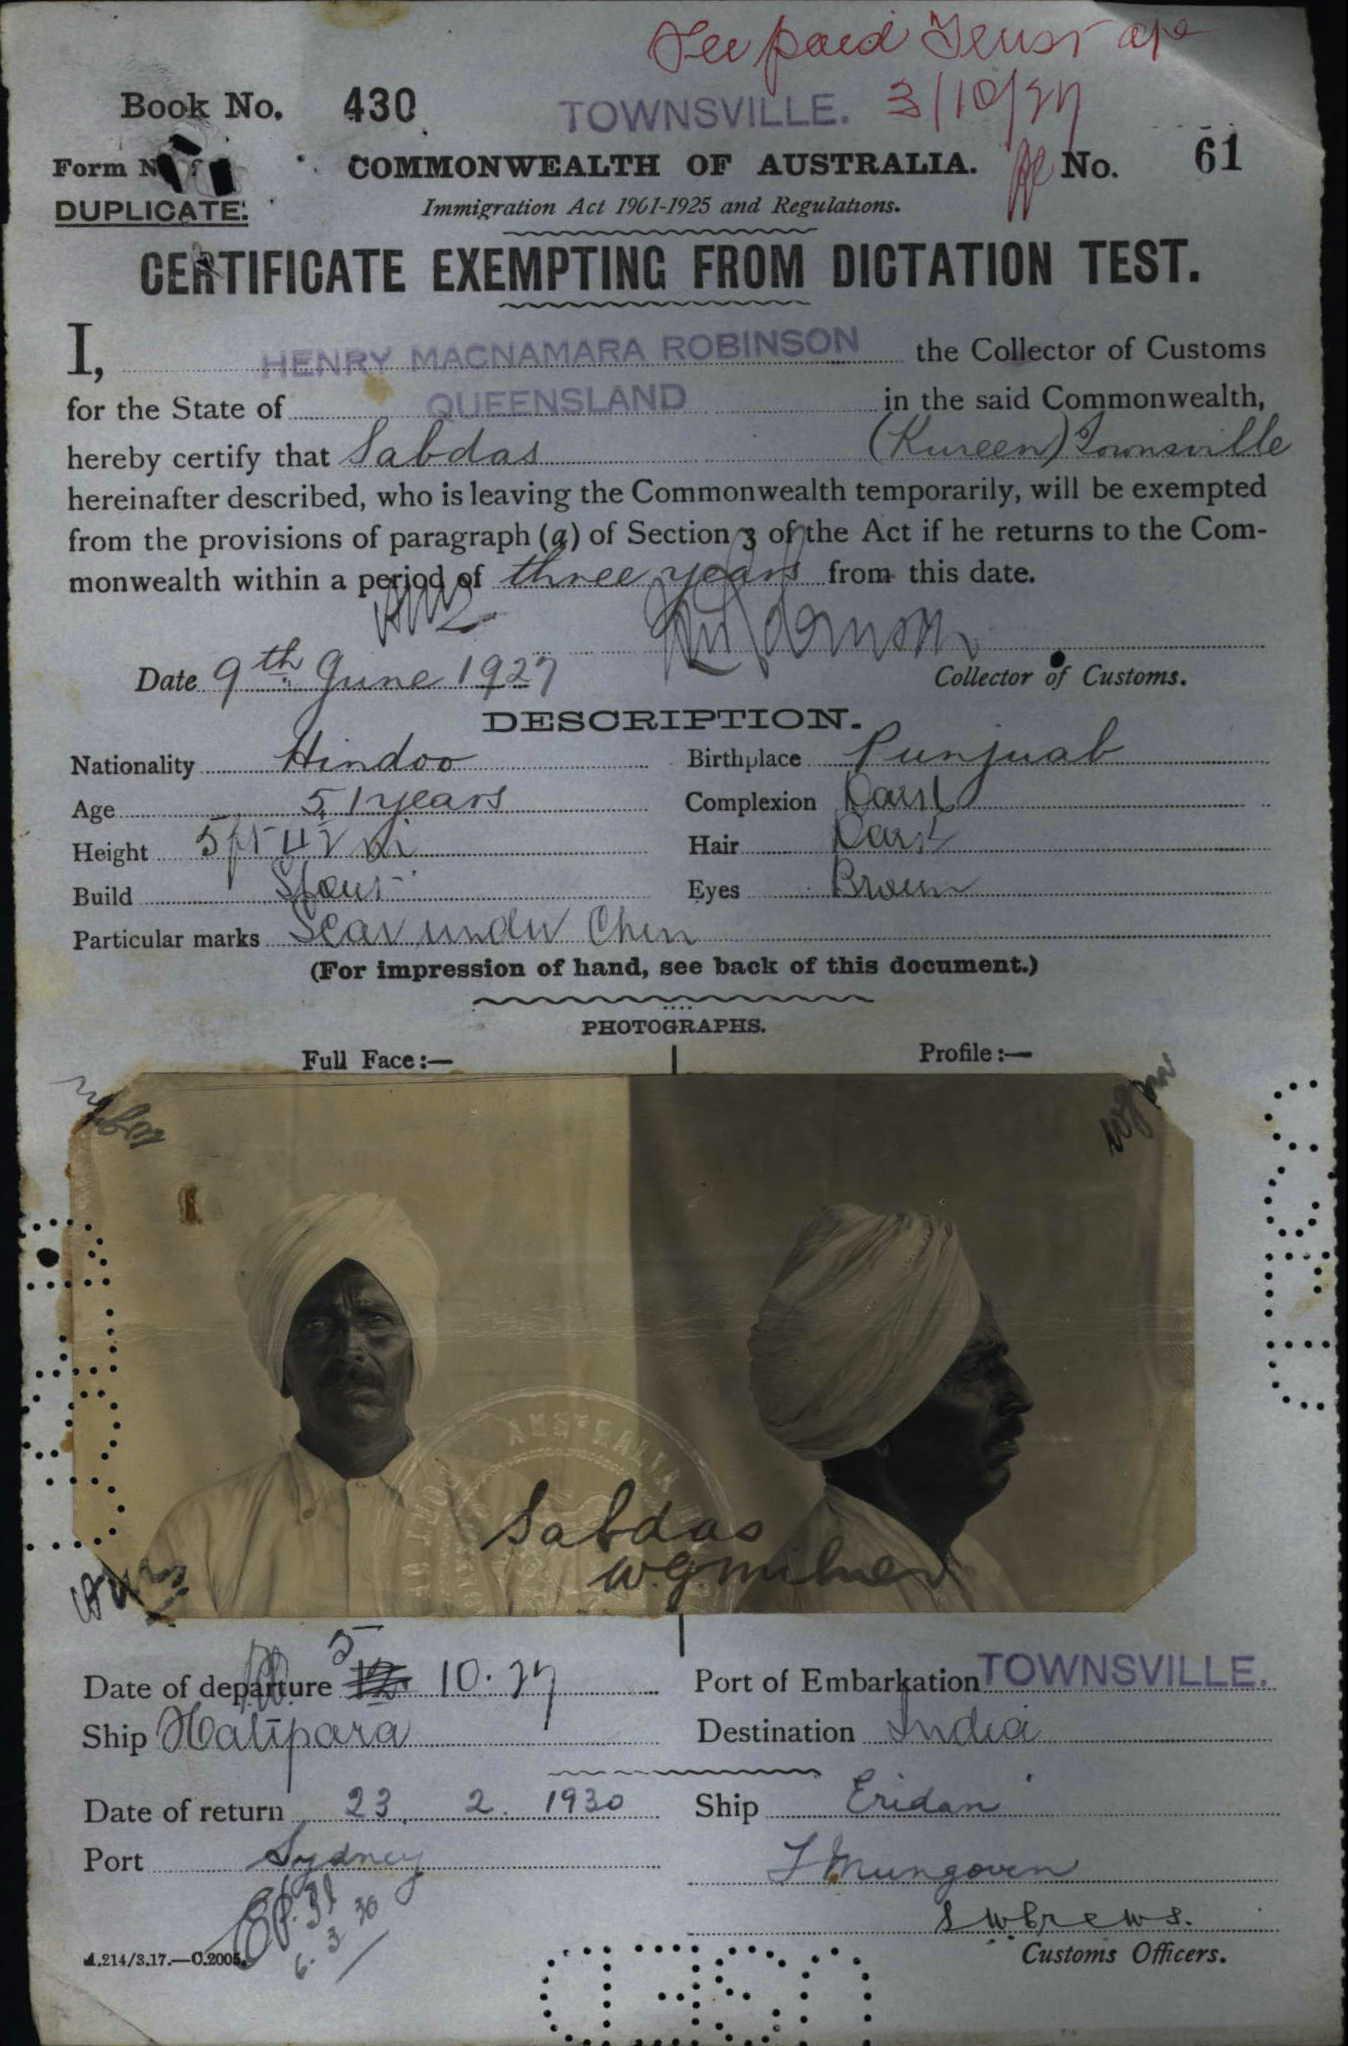 Fee paid
3/10/27
Book No. 430
TOWNSVILLE.
Form N
COMMONWEALTH OF AUSTRALIA.
No. 61
DUPLICATE.
Immigration Act 1901-1925 and Regulations.
CERTIFICATE EXEMPTING FROM DICTATION TEST.
I, HENRY MACNAMARA ROBINSON the Collector of Customs
for the State of QUEENSLAND in the said Commonwealth,
hereby certify that Sabdas (Kureen) Townsville
hereinafter described, who is leaving the Commonwealth temporarily, will be exempted
from the provisions of paragraph (a) of Section 3 of the Act if he returns to the Com-
monwealth within a period of three years from this date.
Date 9th June 1927
Collector of Customs.
DESCRIPTION.
Nationality Hindoo Birthplace Punjuab
Age 51 years Complexion Dark
Height 5 ft 4½ in Hair Dark
Build Stout Eyes Brown
Particular marks Scar under Chin
(For impression of hand, see back of this document.)
PHOTOGRAPHS.
Full Face:— Profile:—
AUSTRALIA
Sabdas
W.G. Milner
Date of departure 5 10.27 Port of Embarkation TOWNSVILLE.
Ship Hatipara Destination India
Date of return 23. 2. 1930 Ship Eridan
Port Sydney
6.3.30
Customs Officers.